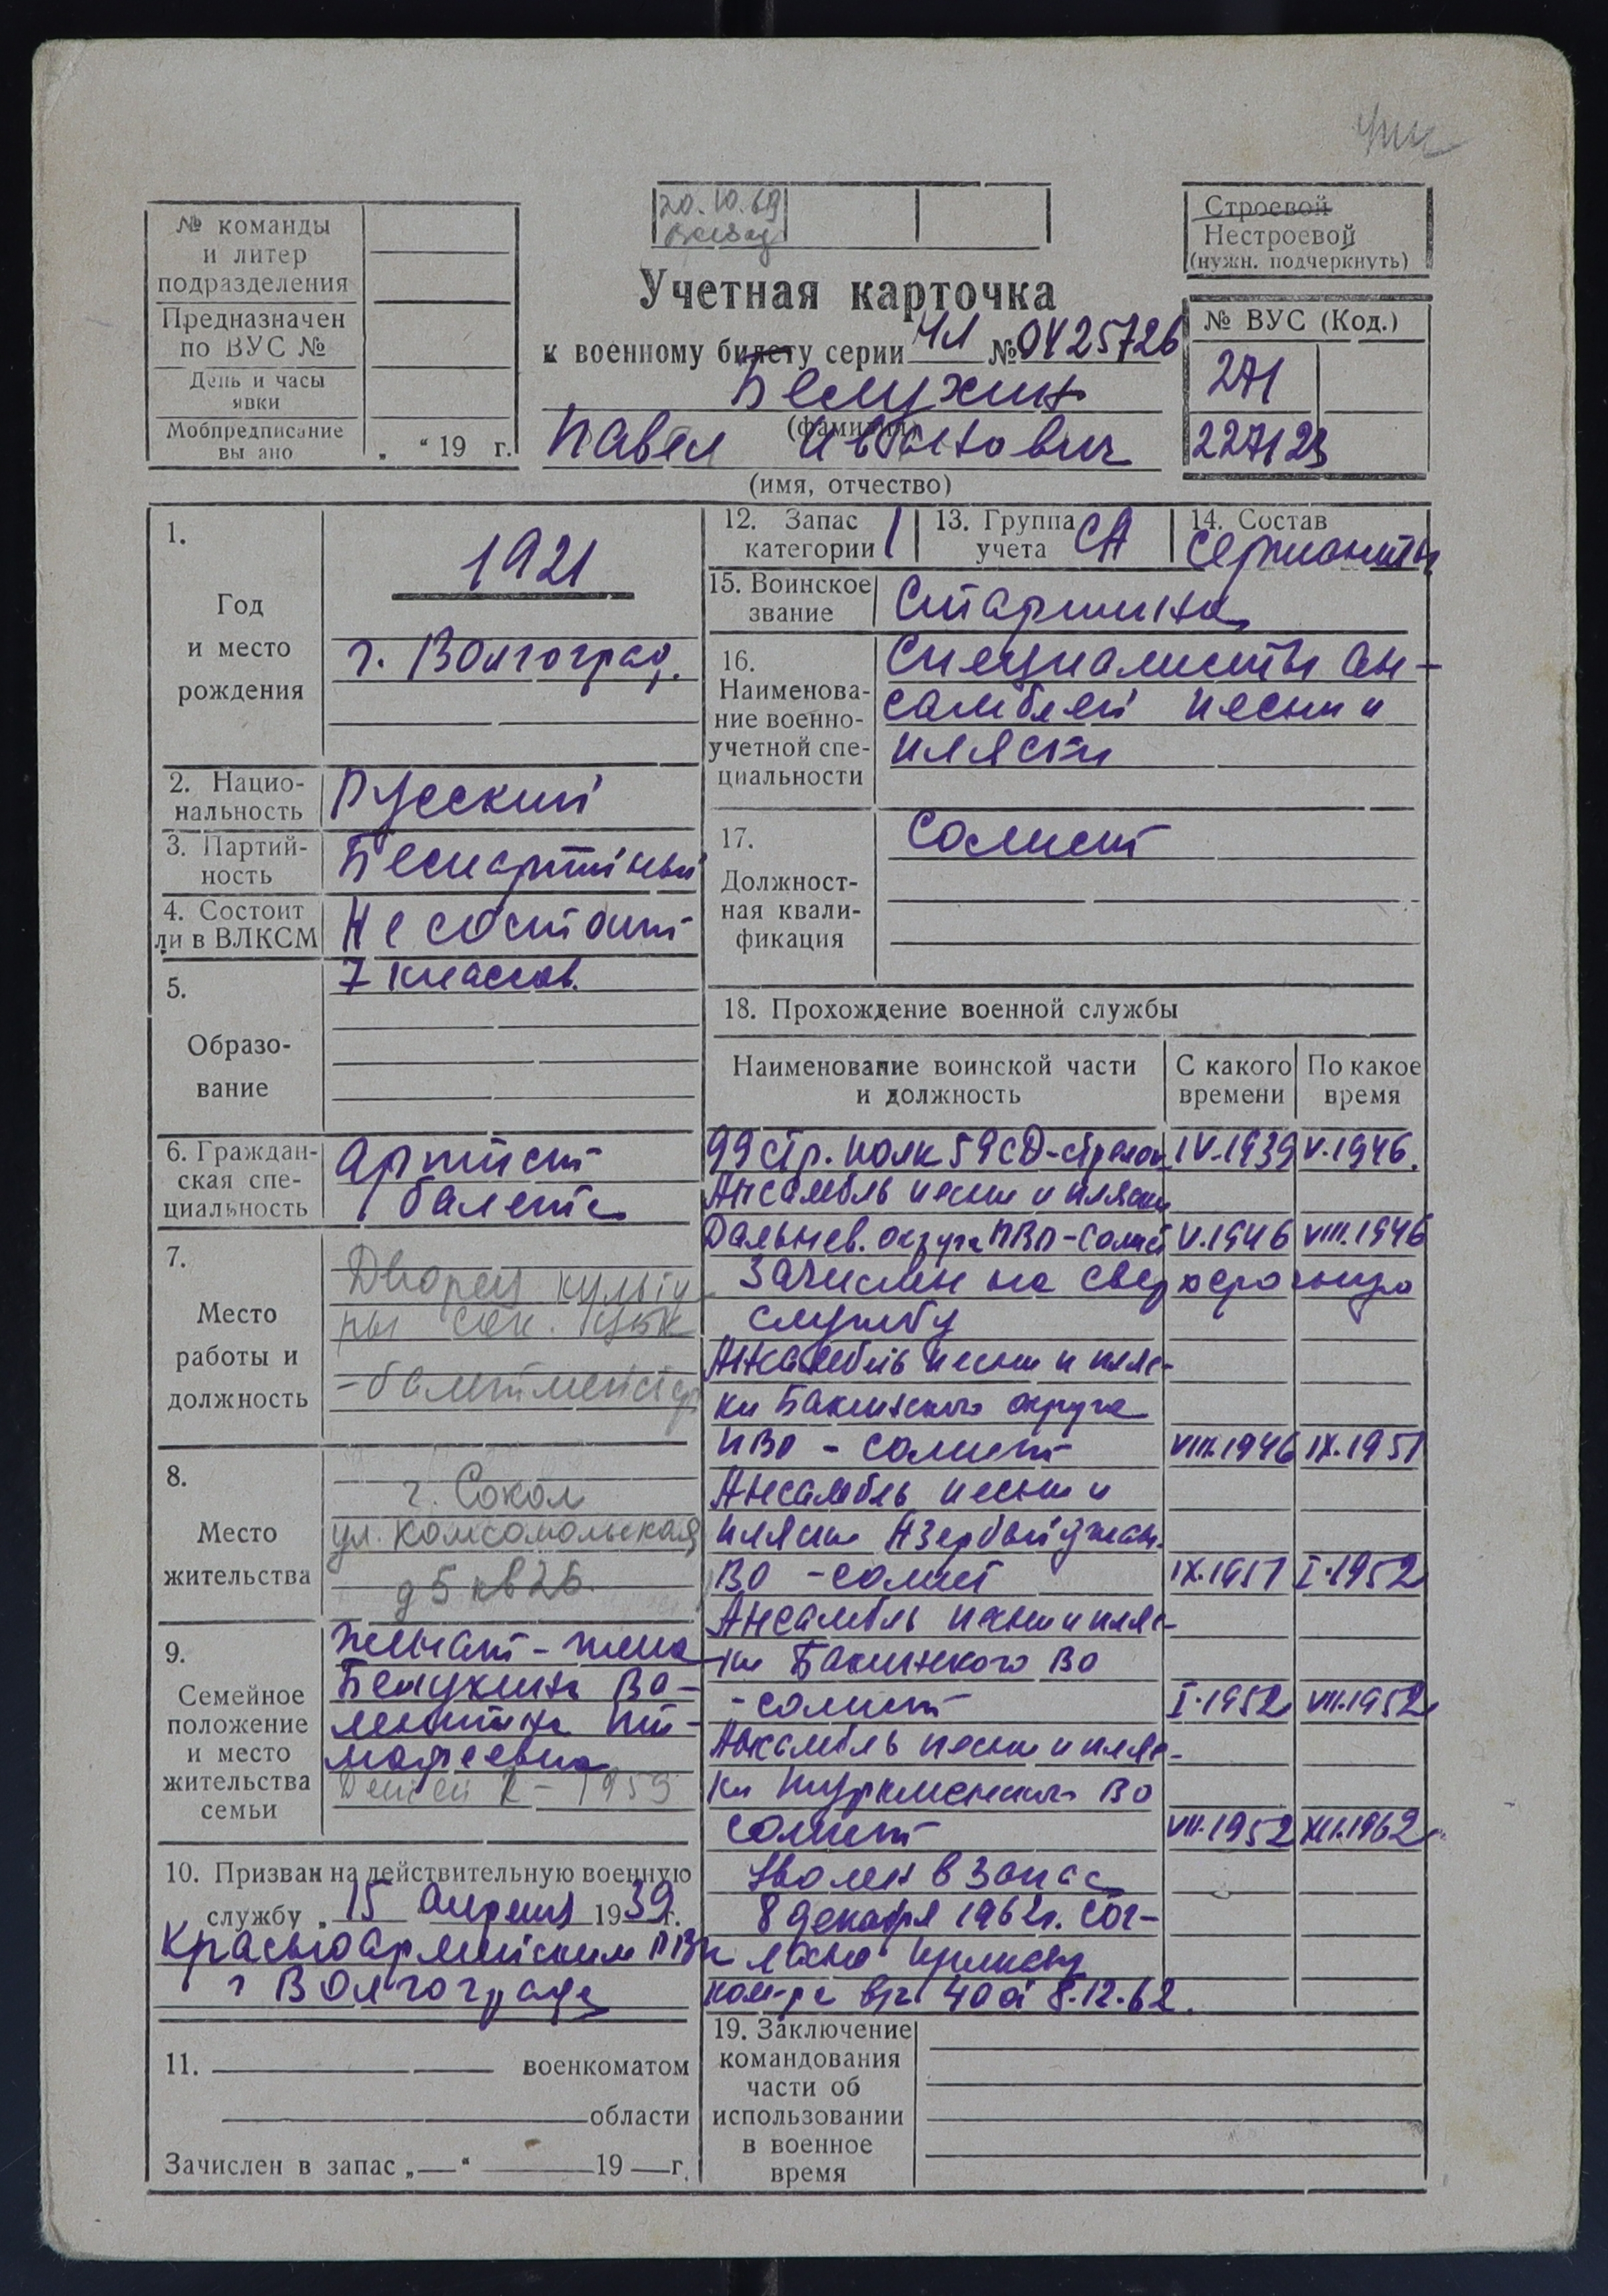 № команды
и литер
подразделения
Предназначен
по ВУС №
День и часы
явки
Мобпредписание
вы ано „ “ 19 г.
20.10.69
Учетная карточка
к военному билету серии ЧЛ № 0425726
Белухин
(фамилия)
Павел Иванович
(имя, отчество)
Строевой
Нестроевой
(нужн. подчеркнуть)
№ ВУС (Код.)
271
227123
1.
Год
и место
рождения
1921
г. Волгоград.
2. Нацио-
нальность
Русский
3. Партий-
ность
Беспартийный
4. Состоит
ли в ВЛКСМ
Не состоит
5.
Образо-
вание
7 классов.
6. Граждан-
ская спе-
циальность
Артист
балета
7.
Место
работы и
должность
Дворец культу
ры сок. ЦБК
-балетмейстер
8.
Место
жительства
г. Сокол
ул. Комсомольская
д 5 кв 26.
9.
Семейное
положение
и место
жительства
семьи
Женат - жена
Белухина Ва-
лентина Ти-
мофеевна
Детей 2 - 1959
10. Призван на действительную военную
службу „ 15 апреля 1939 г.
Красноармейским РВК
г Волгограда
11. военкоматом
области
Зачислен в запас „—“ 19 — г.
12. Запас
категории 1
13. Группа
учета СА
14. Состав
сержанты
15. Воинское
звание
Старшина
16.
Наименова-
ние военно-
учетной спе-
циальности
Специалисты ан-
самблей песни и
пляски
17.
Должност-
ная квали-
фикация
Солист
18. Прохождение военной службы
Наименование воинской части
и должность
С какого
времени
По какое
время
99 стр. полк 59 СД-стрелок IV.1939 V.1946.
Ансамбль песни и пляски
Дальнев. округа ПВО-солист V.1946 VIII.1946
Зачислен на сверхсрочную
службу
Ансамбль песни и пляс-
ки Бакинского округа
ПВО - солист VIII.1946 IX.1951
Ансамбль песни и
пляски Азербайджан.
ВО - солист IX.1951 I.1952
Ансамбль песни и пляс-
ки Бакинского ВО
- солист I.1952 VII.1952
Ансамбль песни и пляс-
ки Туркменского ВО
солист VII.1952 XII.1962
Уволен в запас
8 декабря 1962г. сог-
ласно приказу
ком-ра в/ч 40 от 8.12.62.
19. Заключение
командования
части об
использовании
в военное
время